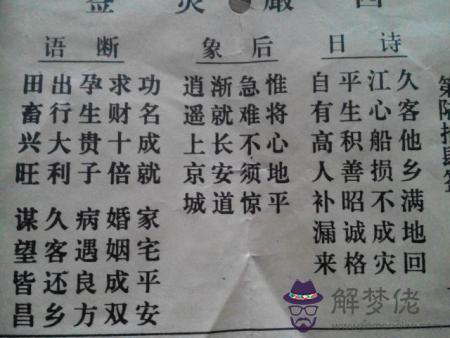 诗日
久客他乡满地回
江心船损不成灾
平生积善昭诚格
自有高人补漏来
后象
惟将心地平
急难不须惊
渐就长安道
逍遥上京城
断语
功名成就
求财十倍
孕生贵子
出行大利
田畜兴旺
家宅平安
婚姻成双
病遇良方
久客还乡
谋望皆昌
解梦佬